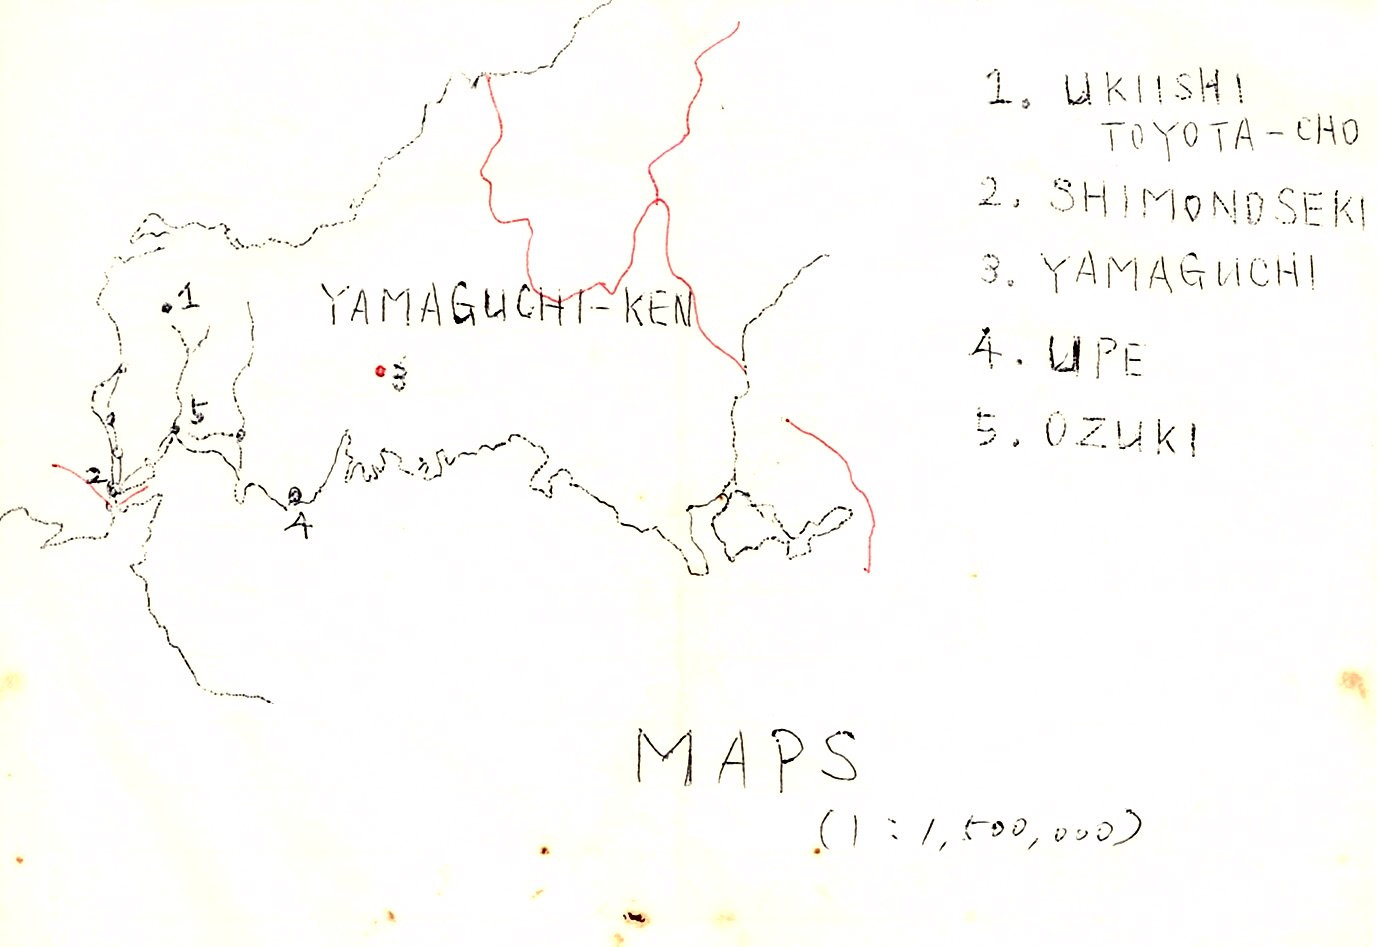 1. UKIISHI
TOYOTA-CHO
2. SHIMONOSEKI
3. YAMAGUCHI
4. UPE
5. OZUKI
1
YAMAGUCHI-KEN
3
5
2
4
MAPS
(1:1,500,000)